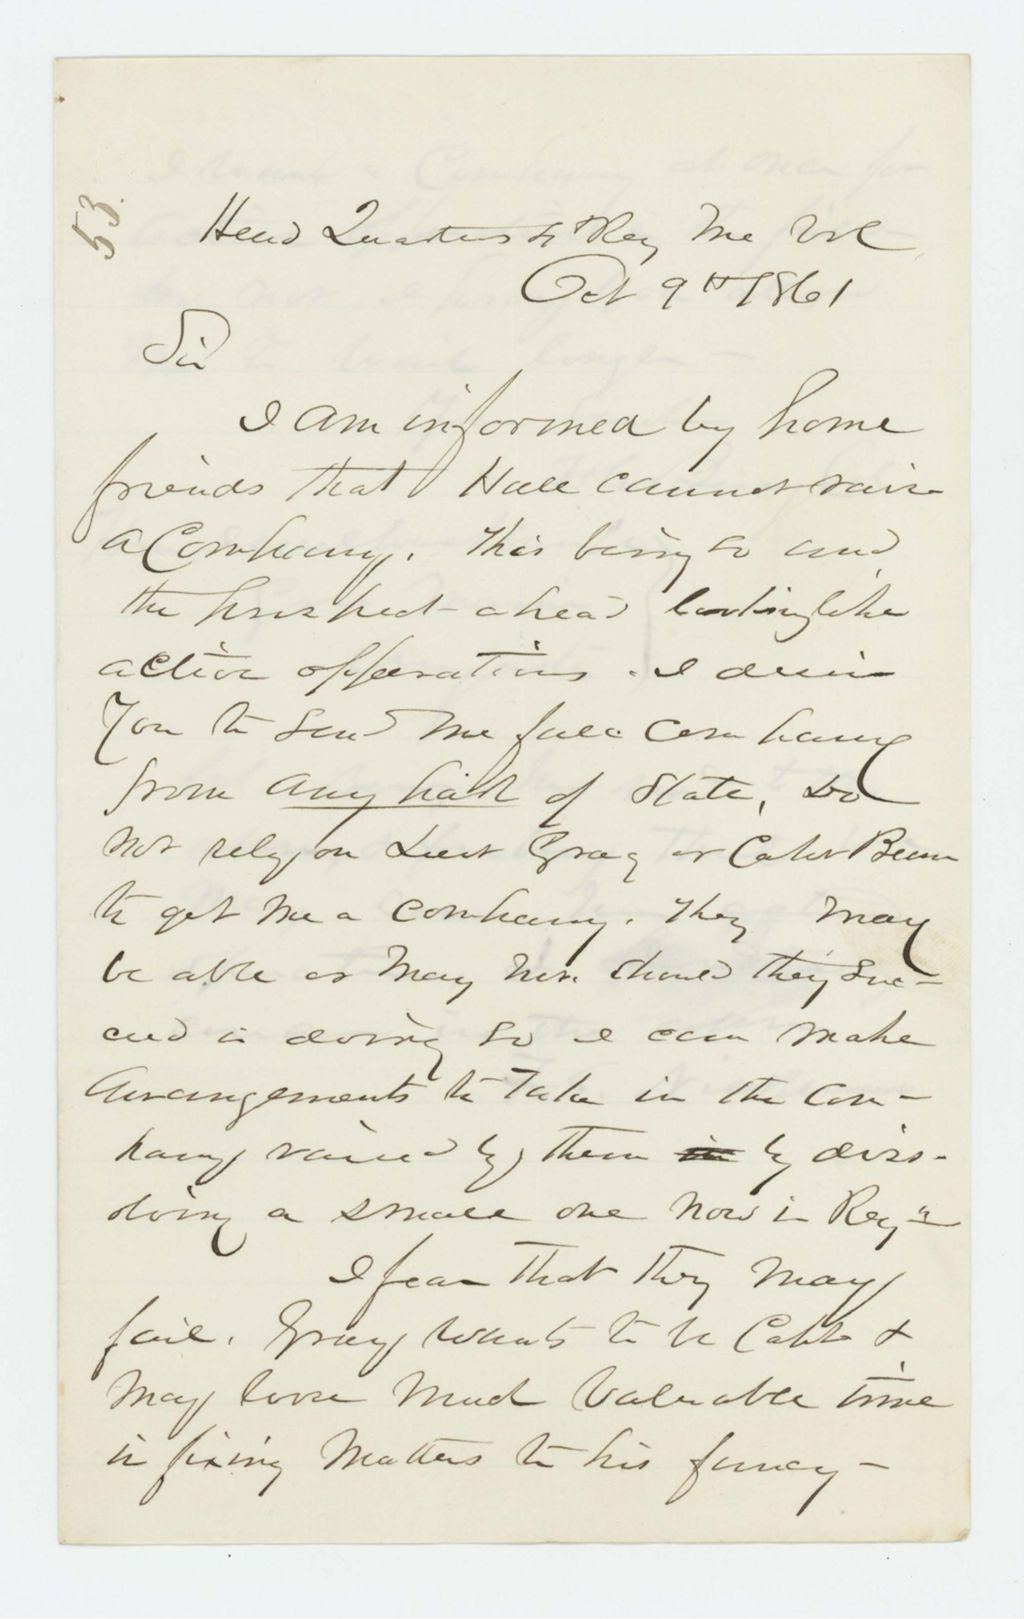 53.
Head Quarters 4 Reg Me Vol
Oct 9th 1861
Sir
I am informed by home
friends that Hall cannot raise
a Company. This being so and
the prospect ahead looking like
active opperations. I desire
You to send me full company
from any part of State, Do
not rely on Lieut Gray or Capt Bean
to get me a company. They may
be able or may not. Should they suc-
ceed in doing so I can make
Arrangements to Take in the Com-
pany raised by them in by divi-
ding a small one now in Regt
I fear that they may
fail. Gray wants to be Capt &
may loose much valuable time
in fixing matters to his fancy -